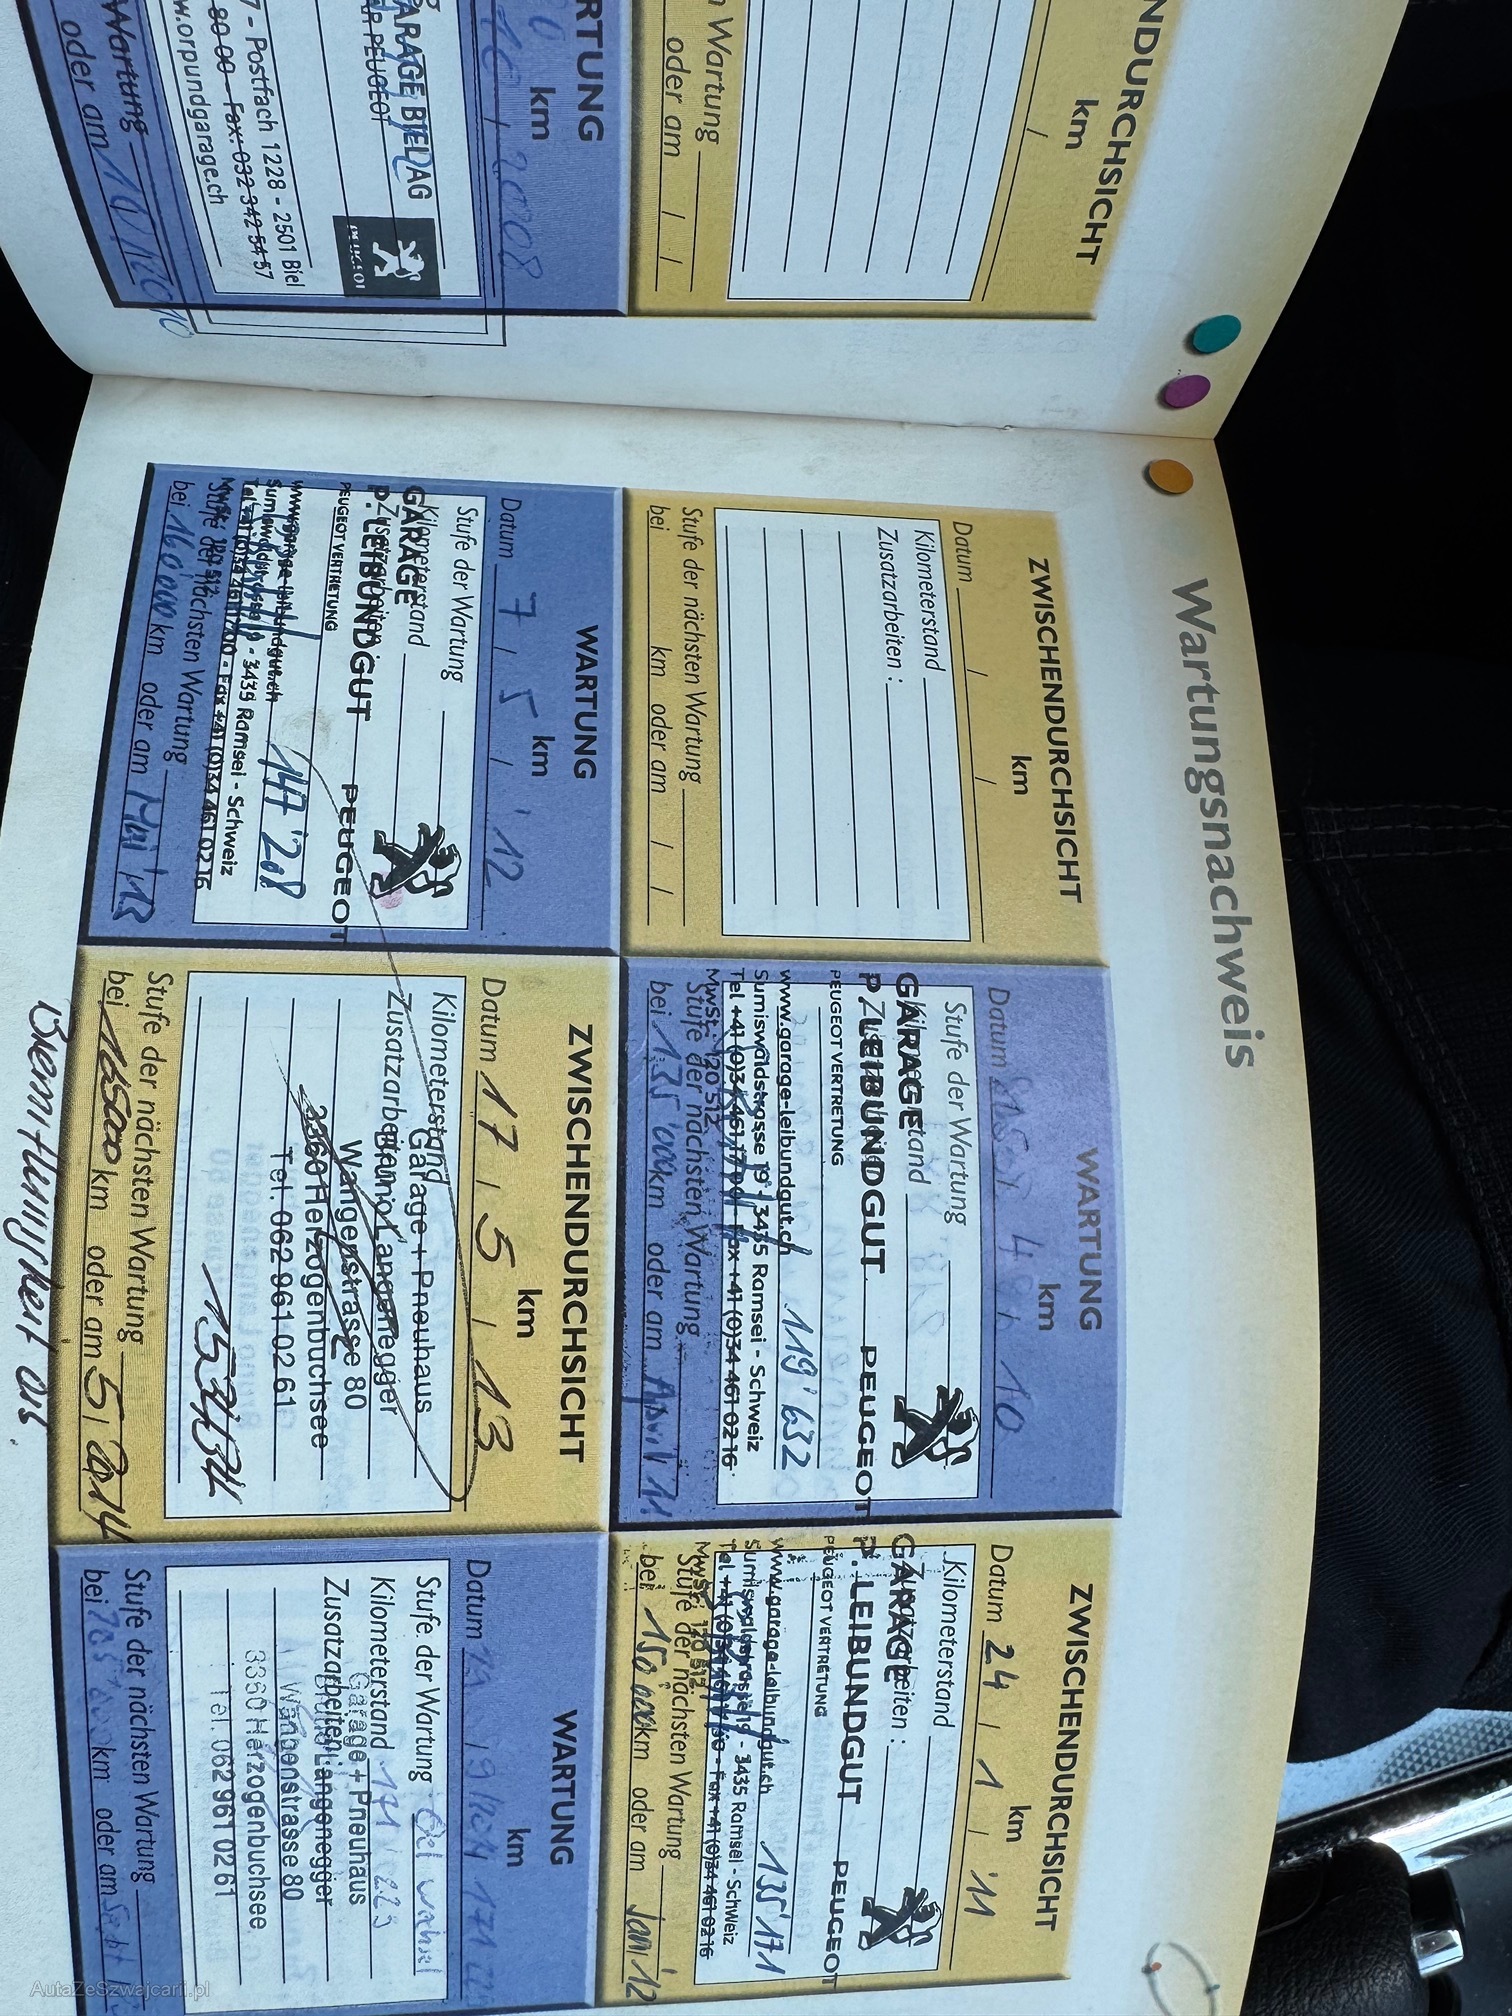 NDURCHSICHT
km
/
Wartung
oder am / /
RTUNG
km
2008
ARAGE BIEL AG
AR PEUGEOT
7 - Postfach 1228 - 2501 Biel
80 00 - Fax: 032 342 54 57
w.orpundgarage.ch
Wartung
oder am 10/2010
Wartungsnachweis
ZWISCHENDURCHSICHT
km
Datum / /
Kilometerstand
Zusatzarbeiten :
Stufe der nächsten Wartung
bei km oder am / /
WARTUNG
km
Datum 4 10
Stufe der Wartung
Kilometerstand
GARAGE
P. LEIBUNDGUT PEUGEOT
PEUGEOT VERTRETUNG
119'632
www.garage-leibundgut.ch
Sumiswaldstrasse 19 - 3435 Ramsei - Schweiz
Tel +41 (0)34 461 17 00 - Fax +41 (0)34 461 02 16
Mwst: 120 512
Stufe der nächsten Wartung
bei 135'000 km oder am April '11
ZWISCHENDURCHSICHT
km
Datum 24 / 1 / '11
Kilometerstand
Zusatzarbeiten :
GARAGE
P. LEIBUNDGUT PEUGEOT
PEUGEOT VERTRETUNG
135'171
www.garage-leibundgut.ch
Sumiswaldstrasse 19 - 3435 Ramsei - Schweiz
Tel +41 (0)34 461 17 00 - Fax +41 (0)34 461 02 16
Mwst: 120 512
Stufe der nächsten Wartung
bei 150'000 km oder am Jan '12
WARTUNG
km
Datum 7 / 5 / '12
Stufe der Wartung
Kilometerstand
Zusatzarbeiten
GARAGE
P. LEIBUNDGUT PEUGEOT
PEUGEOT VERTRETUNG
147'208
www.garage-leibundgut.ch
Sumiswaldstrasse 19 - 3435 Ramsei - Schweiz
Tel +41 (0)34 461 17 00 - Fax +41 (0)34 461 02 16
Mwst: 120 512
Stufe der nächsten Wartung
bei 160'000 km oder am Mai '13
ZWISCHENDURCHSICHT
km
Datum 17 / 5 / 13
Kilometerstand
Zusatzarbeiten
Garage + Pneuhaus
Bruno Langenegger
Wangenstrasse 80
3360 Herzogenbuchsee
Tel. 062 961 02 61
Stufe der nächsten Wartung
bei 168500 km oder am 5 / 2014
WARTUNG
km
Datum
Stufe der Wartung
Kilometerstand
Zusatzarbeiten :
Garage + Pneuhaus
Bruno Langenegger
Wangenstrasse 80
3360 Herzogenbuchsee
Tel. 062 961 02 61
Stufe der nächsten Wartung
bei km oder am
AutaZeSzwajcarii.pl